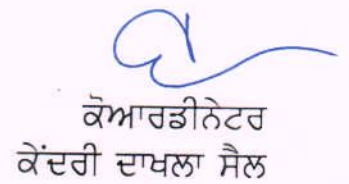 ਕੋਆਰਡੀਨੇਟਰ
ਕੇਂਦਰੀ ਦਾਖਲਾ ਸੈਲ